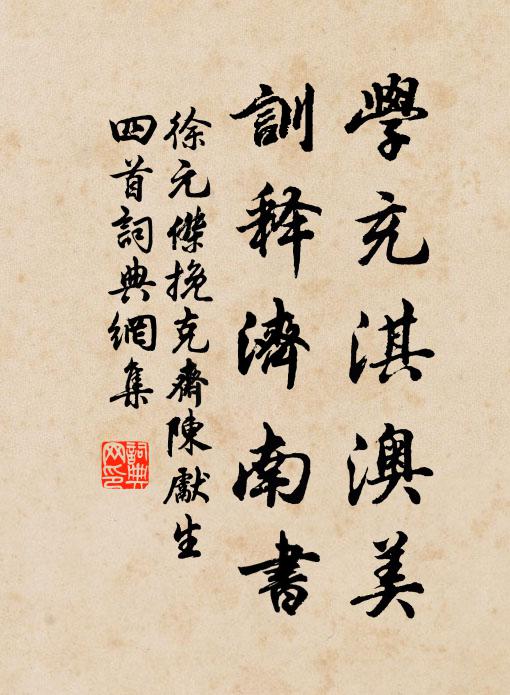 學充淇澳美
訓释濟南書
徐元傑挽克齋陳獻生
四首詞典網集
詞典
网印